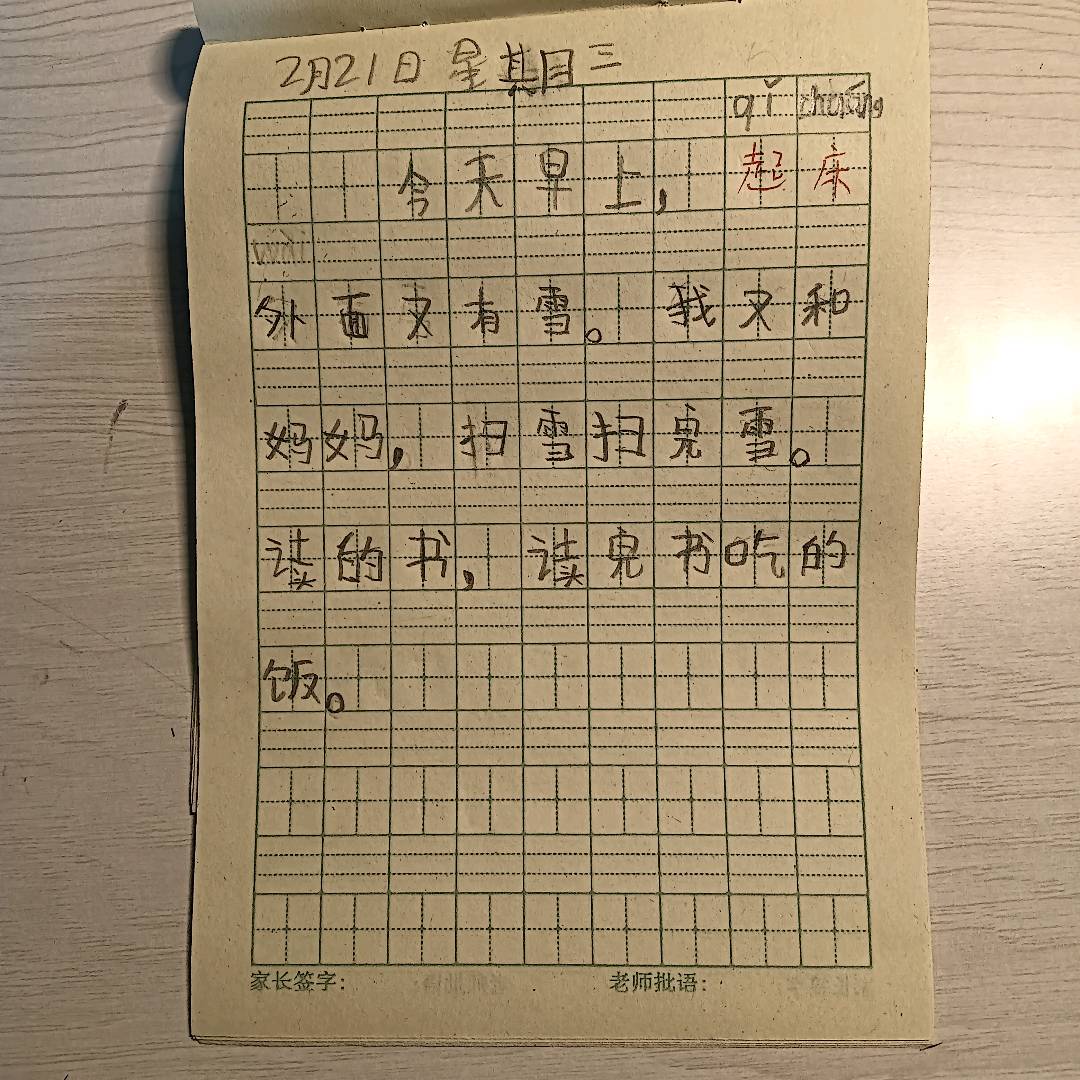 2月21日 星其目三
qǐ chuáng
今天早上，起床
外面又有雪。我又和
妈妈，扫雪扫完雪。
读的书，读完书吃的
饭。
家长签字： 老师批语：